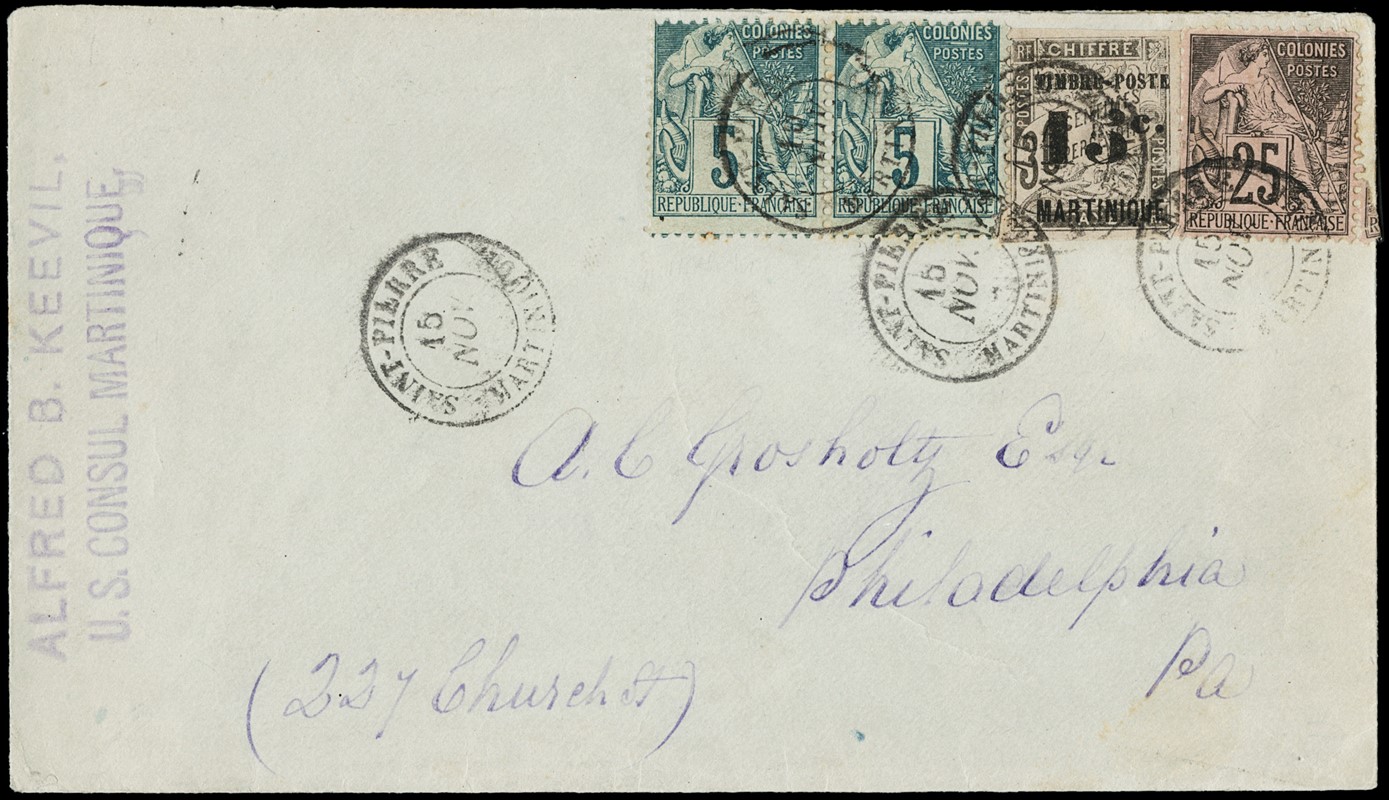 COLONIES
POSTES
5
REPUBLIQUE FRANÇAISE
COLONIES
POSTES
5
REPUBLIQUE FRANÇAISE
RF CHIFFRE
POSTES
POSTES
TIMBRE-POSTE
15 c.
MARTINIQUE
COLONIES
POSTES
25
REPUBLIQUE FRANÇAISE
SAINT-PIERRE
15
NOV.
MARTINIQUE
SAINT-PIERRE
15
NOV.
MARTINIQUE
SAINT-PIERRE
15
NOV
MARTINIQUE
ALFRED B. KEEVIL,
U.S. CONSUL MARTINIQUE,
A. C Grosholtz Esq.
Philadelphia
Pa
(227 Church st)